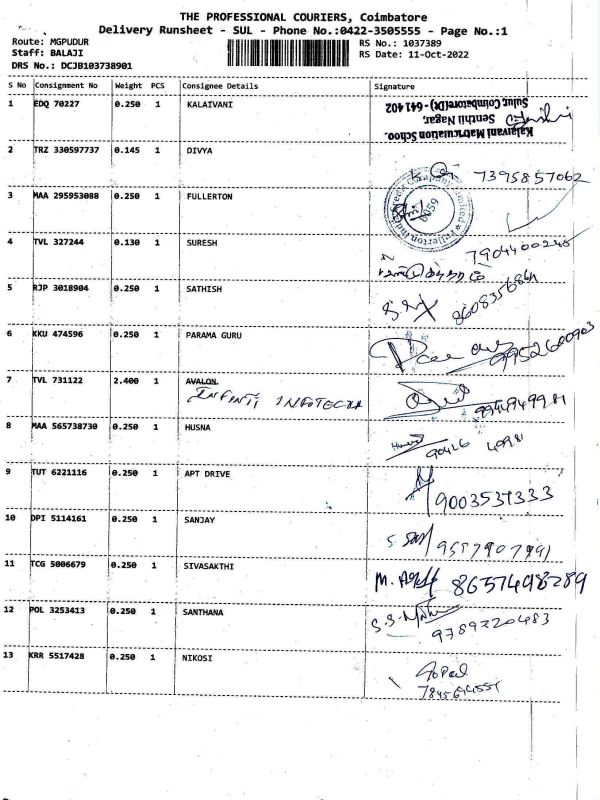 THE PROFESSIONAL COURIERS, Coimbatore
Delivery Runsheet - SUL - Phone No.:0422-3505555 - Page No.:1
Route: MGPUDUR RS No.: 1037389
Staff: BALAJI RS Date: 11-Oct-2022
DRS No.: DCJB103738901
S No Consignment No Weight PCS Consignee Details Signature
1 EDQ 70227 0.250 1 KALAIVANI
Kalaivani Matriculation Schoo
Senthil Nagar,
Sulur, Coimbatore(Dt) - 641 402
2 TRZ 330597737 0.145 1 DIVYA
7395857062
3 MAA 295953088 0.250 1 FULLERTON
Fullerton India Credit Company Limited
6059
4 TVL 327244 0.130 1 SURESH
7904400245
5 RJP 3018904 0.250 1 SATHISH
8608356864
6 KKU 474596 0.250 1 PARAMA GURU
9952600903
7 TVL 731122 2.400 1 AVALON.
INFINTI INFOTECH
8 MAA 565738730 0.250 1 HUSNA
90426 40981
9 TUT 6221116 0.250 1 APT DRIVE
9003531333
10 DPI 5114161 0.250 1 SANJAY
9597907991
11 TCG 5006679 0.250 1 SIVASAKTHI
8657498289
12 POL 3253413 0.250 1 SANTHANA
9789220483
13 KRR 5517428 0.250 1 NIKOSI
Gopal